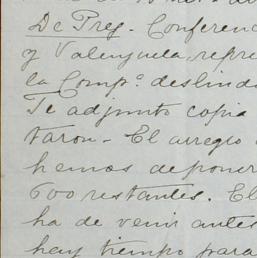 De Preg. Conferenc
y Valenzuela, repre
la Comp.ª deslinda
Te adjunto copia
taron - El arreglo
hemos de poner
600 restantes. El
ha de venir antes
hay tiempo para